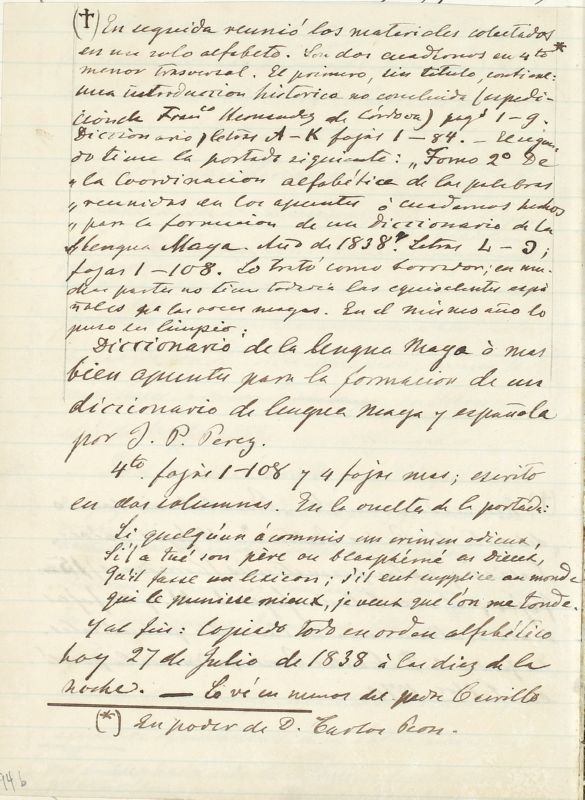 (†) En seguida reunió los materiales colectados
en un solo alfabeto. Son dos cuadernos en 4to *
menor trasversal. El primero, sin título, contiene:
una introduccion histórica no concluida (expedi-
cion de Franco Hernandez de Córdova) pags 1-9.
Diccionario, letras A-K fojas 1-84. — El segun-
do tiene la portada siguiente: „Tomo 2º De
„la Coordinacion alfabética de las palabras
„reunidas en los apuntes ó cuadernos hechos
„para la formacion de un Diccionario de la
„lengua Maya. Año de 1838." Letras L-Ɔ;
fojas 1-108. Lo trató como borrador; en mu-
chas partes no tiene todavia las equivalentes espa-
ñoles pa las voces mayas. En el mismo año lo
puso en limpio:
Diccionario de la lengua Maya ò mas
bien apuntes para la formacion de un
diccionario de lengua maya y española
por J. P. Perez.
4to. fojas 1-108 y 4 fojas mas; escrito
en dos columnas. En la vuelta de la portada:
Si quelqu'un á commis un crimen odieux,
S'il a tué son père ou blasphémé es Dieux,
Qu'il fasse un lexicon; s'il eut supplice au monde
qui le punisse mieux, je veux que l'on me tonde.
Y al fin: Copiado todo en orden alfabético
hoy 27 de Julio de 1838 á las diez de la
noche. — Lo vé en manos del padre Carrillo
(*) En poder de D. Carlos Peon.
94 b